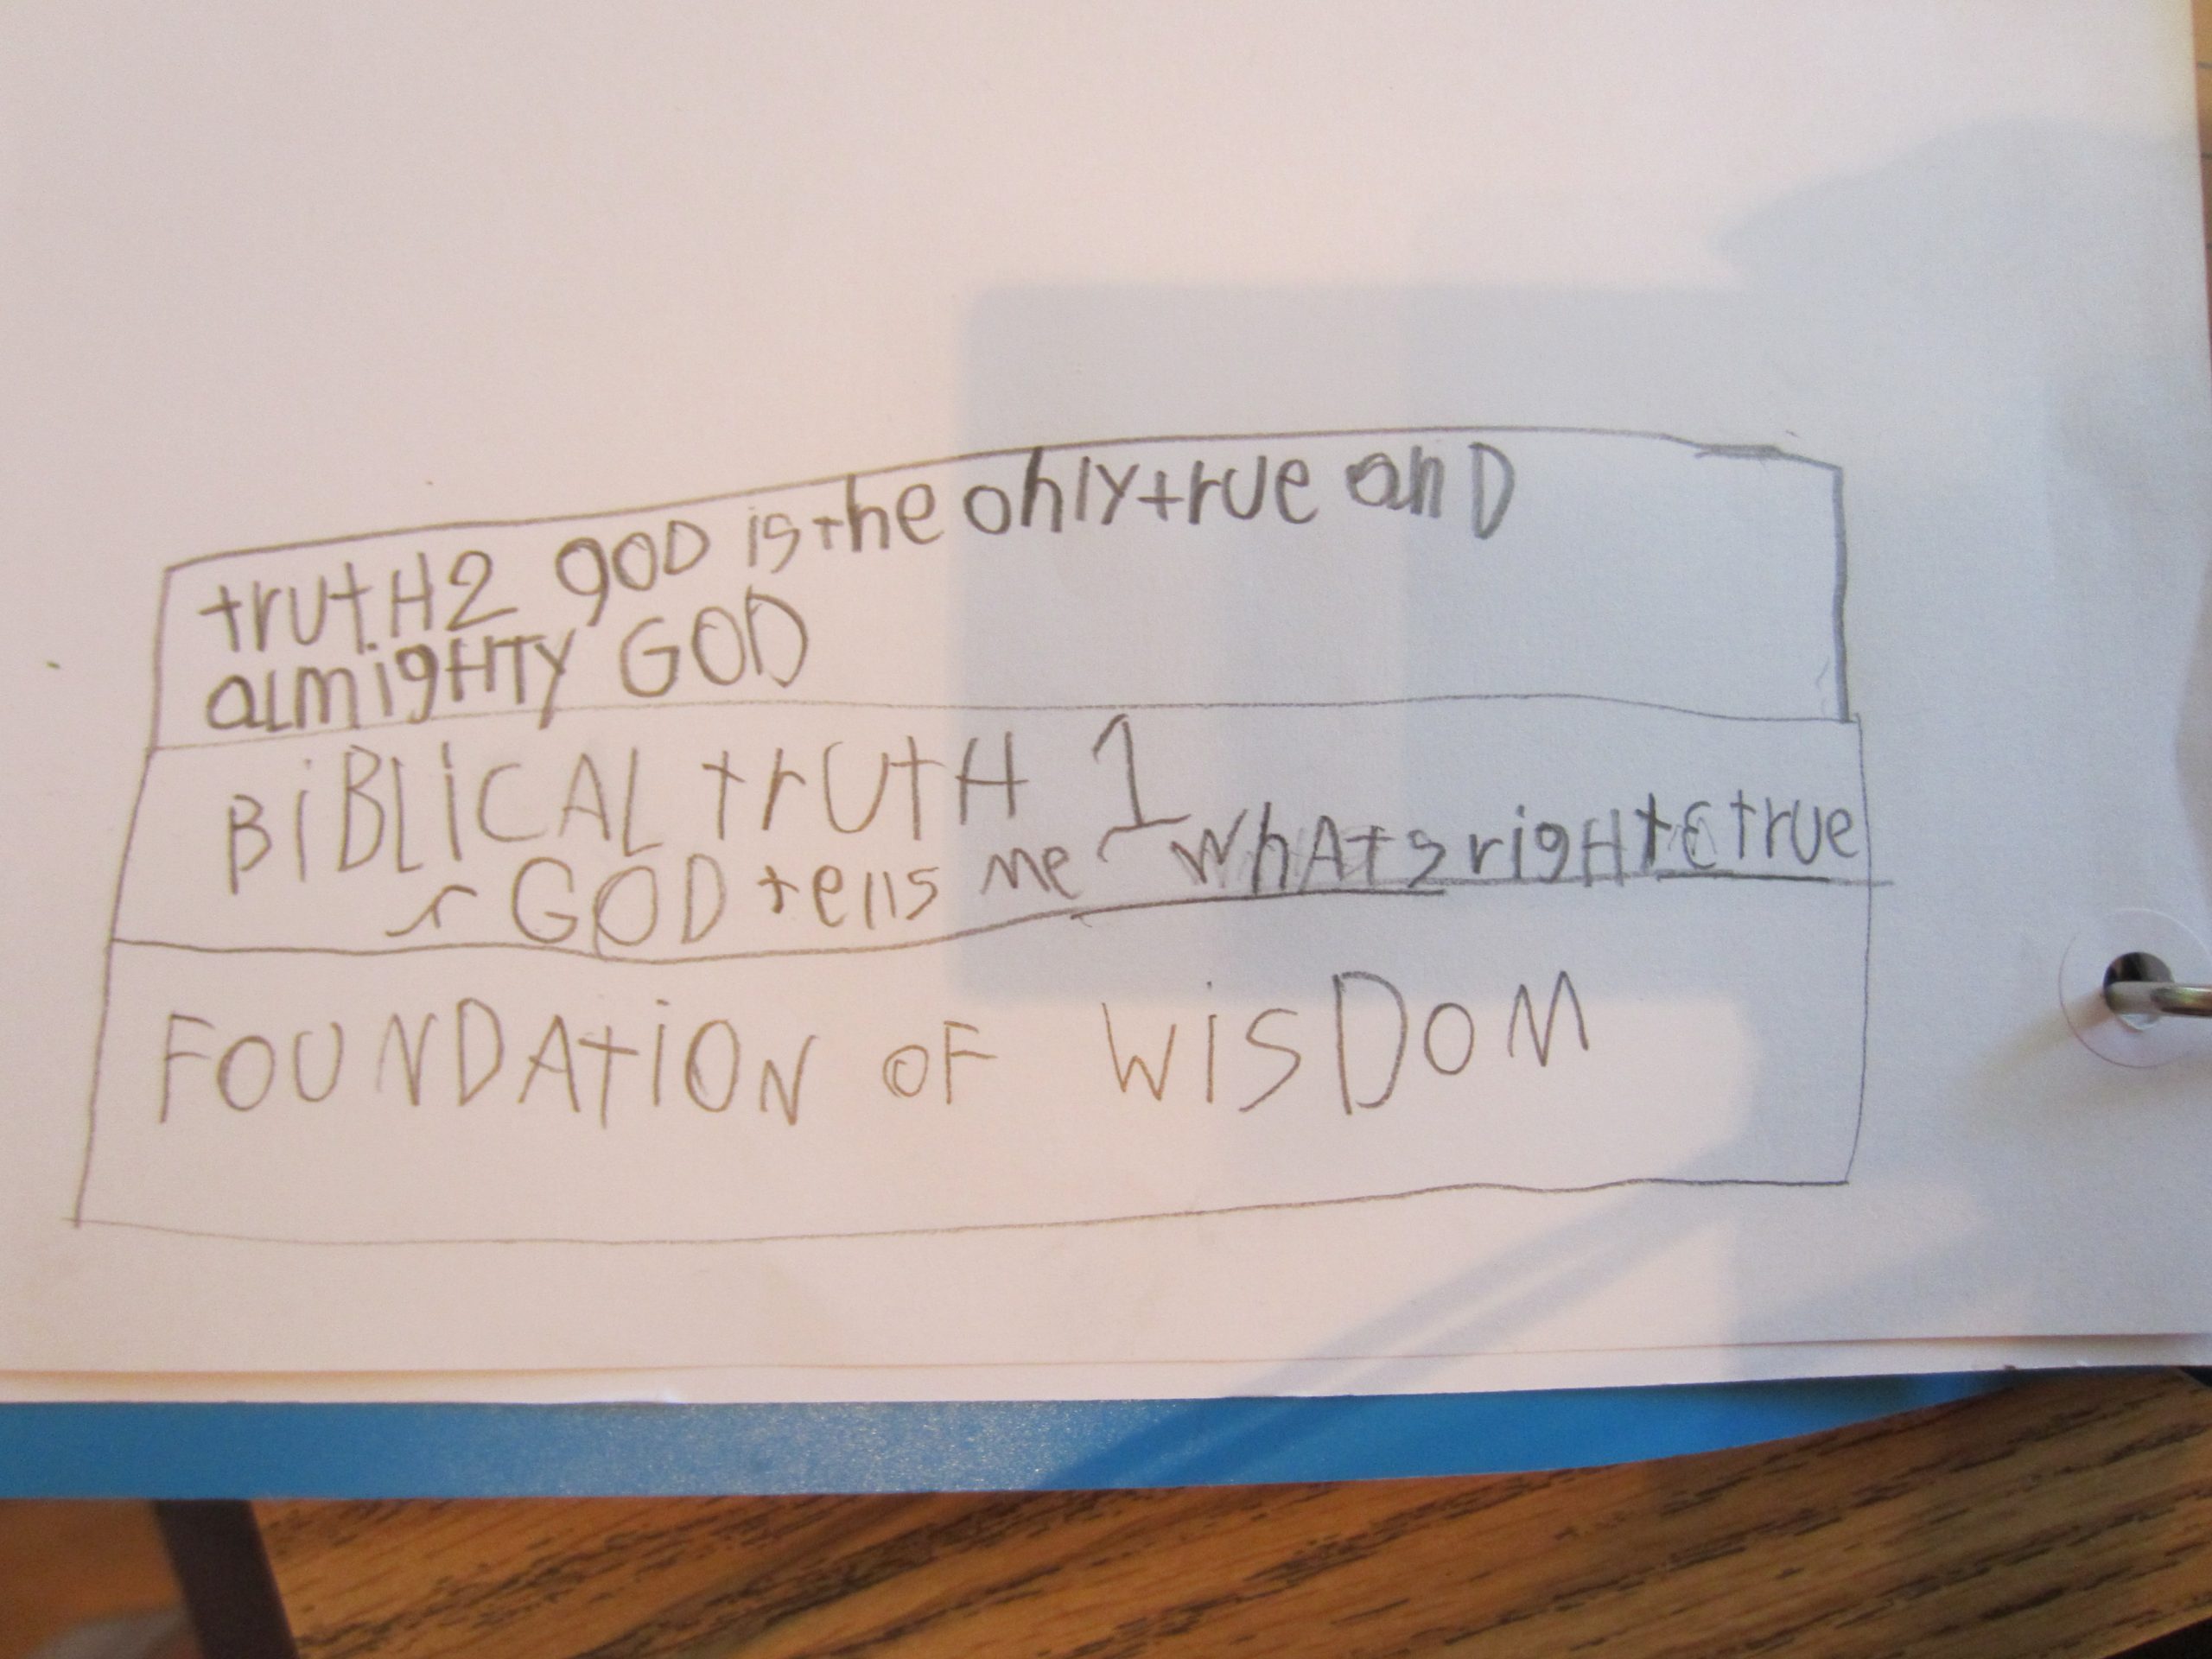 truth2 goD is the only true anD
aLmigHTy GOD
BiBLiCAL truth 1
GOD tells me whAts right & true
FOUNDAtiON OF WiSDOM